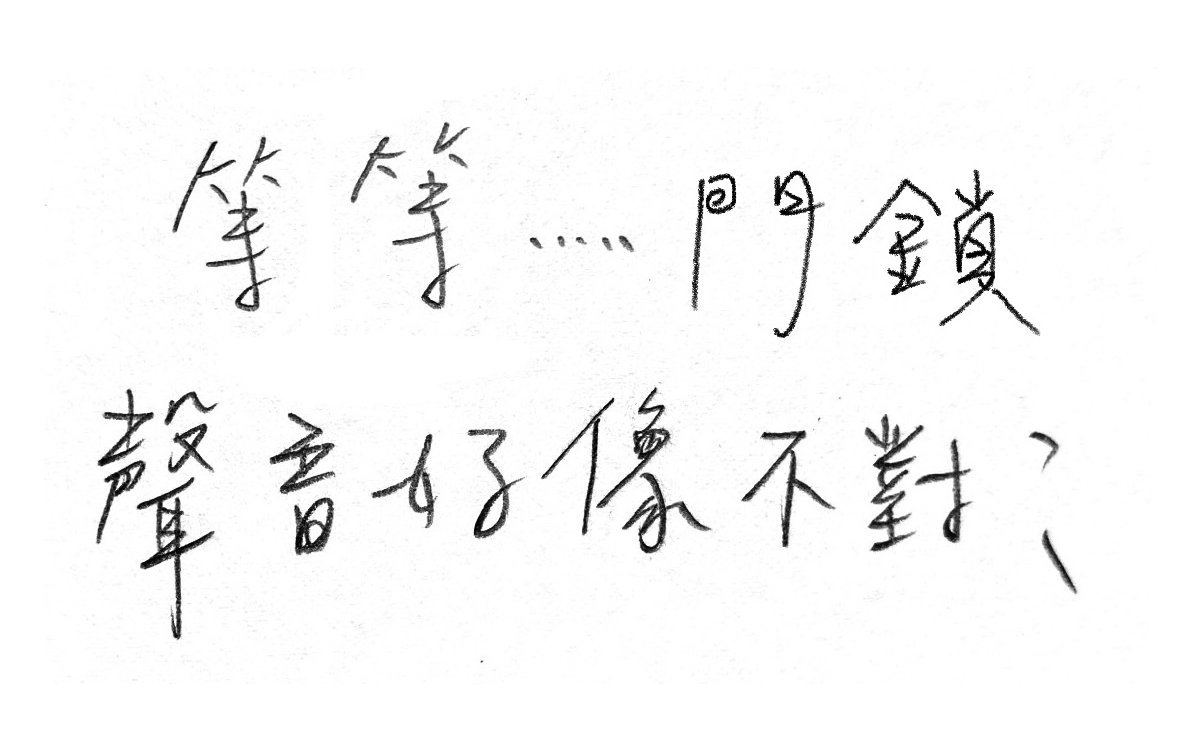 等等.....門鎖
聲音好像不對?